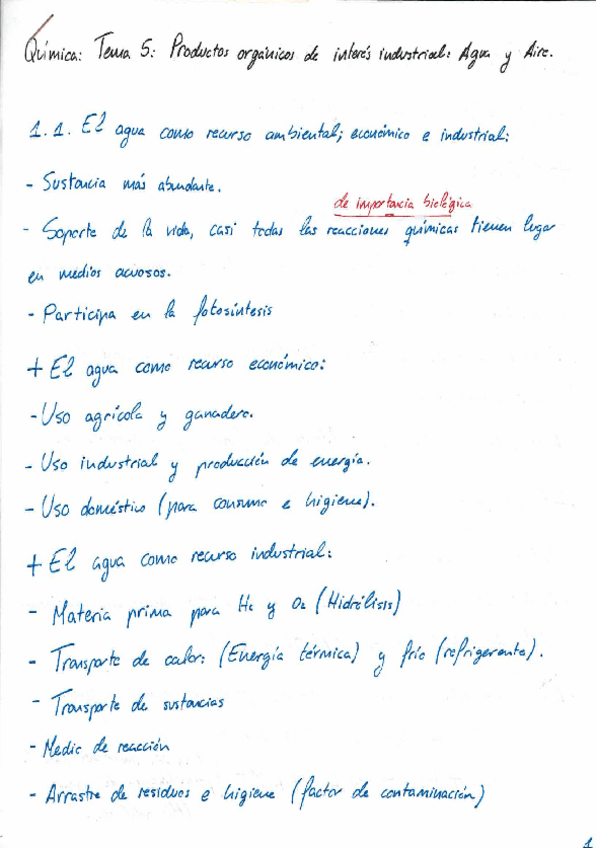 Química: Tema 5: Productos orgánicos de interés industrial: Agua y Aire.
1.1. El agua como recurso ambiental, económico e industrial:
- Sustancia más abundante.
de importancia biológica
- Soporte de la vida, casi todas las reacciones químicas tienen lugar
en medios acuosos.
- Participa en la fotosíntesis
+ El agua como recurso económico:
- Uso agrícola y ganadero.
- Uso industrial y producción de energía.
- Uso doméstico (para consumo e higiene).
+ El agua como recurso industrial:
- Materia prima para H2 y O2 (Hidrólisis)
- Transporte de calor: (Energía térmica) y frío (refrigerante).
- Transporte de sustancias
- Medio de reacción
- Arrastre de residuos e higiene (factor de contaminación)
1